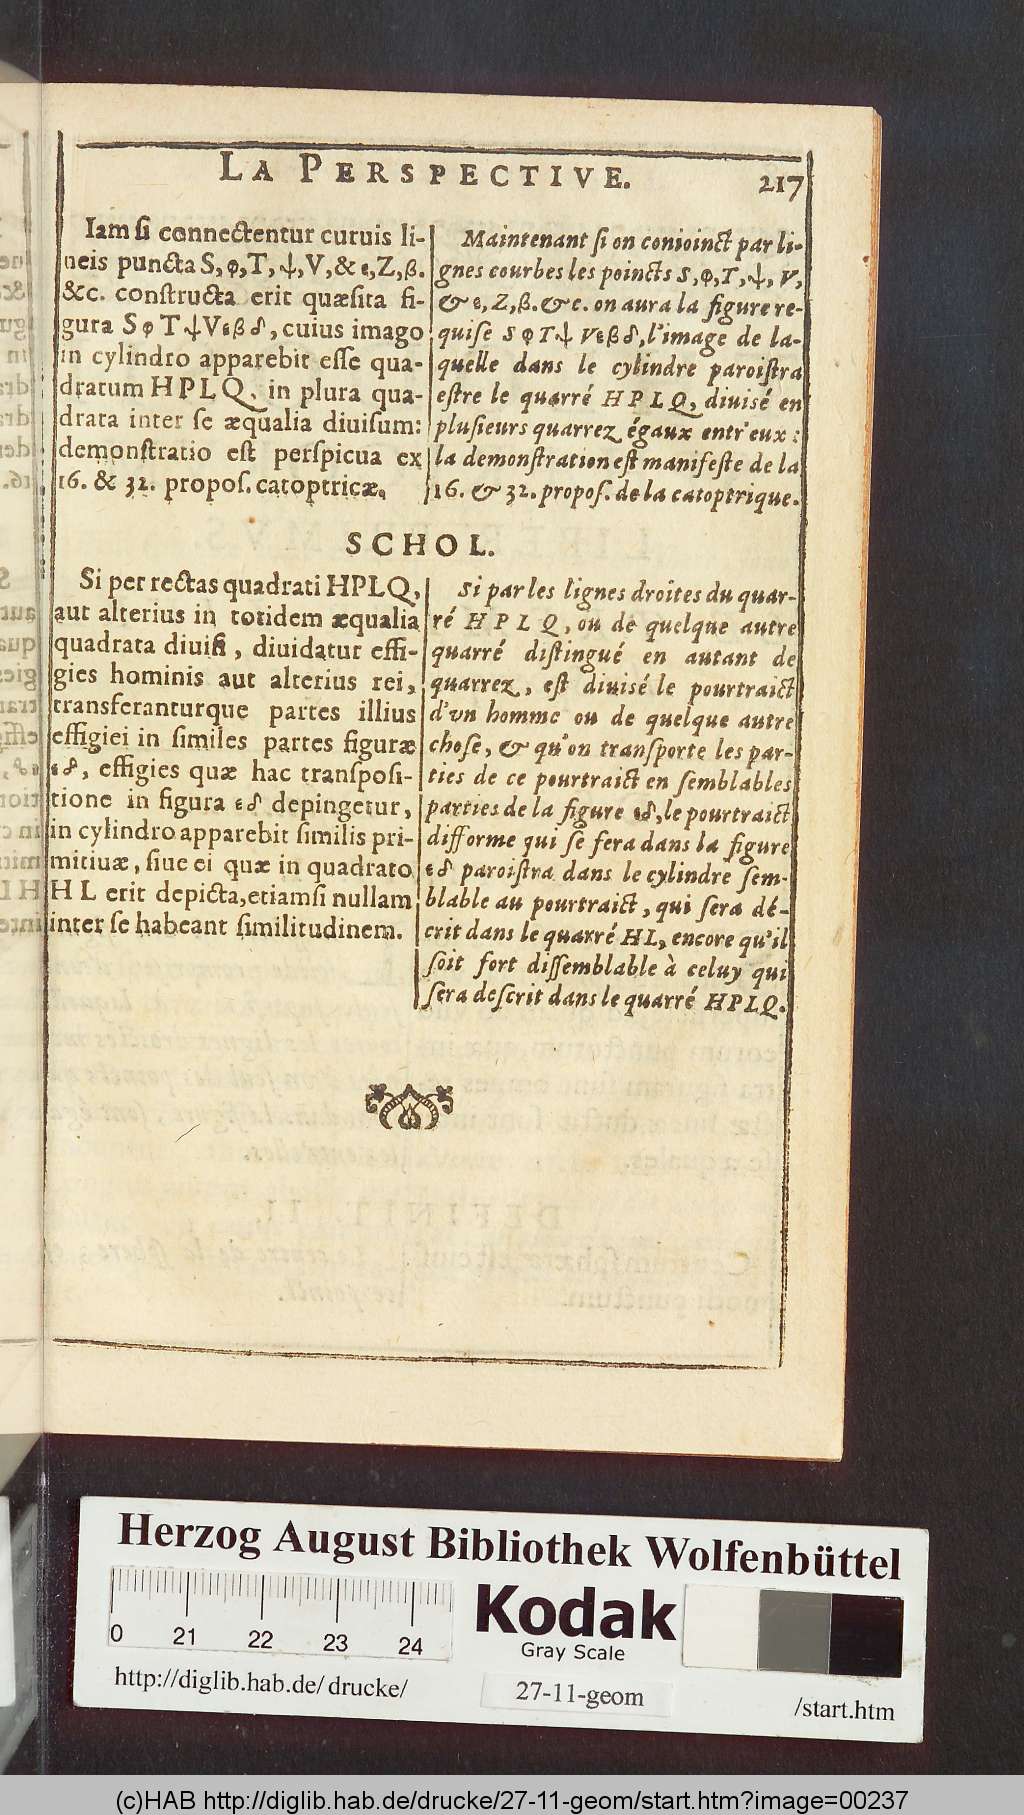 LA PERSPECTIVE.
217
Iam ſi connectentur curuis li-
neis puncta S, φ, T, ψ, V, & ε, Z, β.
&c. conſtructa erit quæſita fi-
gura S φ T ψ V ε β δ, cuius imago
in cylindro apparebit eſſe qua-
dratum HPLQ, in plura qua-
drata inter ſe æqualia diuiſum:
demonſtratio eſt perſpicua ex
16. & 32. propoſ. catoptricæ.
Maintenant ſi on conioinct par li-
gnes courbes les poincts S, φ, T, ψ, V,
& ε, Z, β. &c. on aura la figure re-
quiſe S φ T ψ V ε β δ, l'image de la-
quelle dans le cylindre paroiſtra
eſtre le quarré HPLQ, diuisé en
pluſieurs quarrez égaux entr'eux:
la demonſtration eſt manifeſte de la
16. & 32. propoſ. de la catoptrique.
SCHOL.
Si per rectas quadrati HPLQ,
aut alterius in totidem æqualia
quadrata diuiſi, diuidatur effi-
gies hominis aut alterius rei,
transferanturque partes illius
effigiei in ſimiles partes figuræ
ε δ, effigies quæ hac tranſpoſi-
tione in figura ε δ depingetur,
in cylindro apparebit ſimilis pri-
mitiuæ, ſiue ei quæ in quadrato
HL erit depicta, etiamſi nullam
inter ſe habeant ſimilitudinem.
Si par les lignes droites du quar-
ré HPLQ, ou de quelque autre
quarré diſtingué en autant de
quarrez, eſt diuisé le pourtraict
d'vn homme ou de quelque autre
choſe, & qu'on tranſporte les par-
ties de ce pourtraict en ſemblables
parties de la figure ε δ, le pourtraict
difforme qui ſe fera dans la figure
ε δ paroiſtra dans le cylindre ſem-
blable au pourtraict, qui ſera dé-
crit dans le quarré HL, encore qu'il
ſoit fort diſſemblable à celuy qui
ſera deſcrit dans le quarré HPLQ.
Herzog August Bibliothek Wolfenbüttel
0 21 22 23 24
Kodak
Gray Scale
http://diglib.hab.de/drucke/
27-11-geom
/start.htm
(c)HAB http://diglib.hab.de/drucke/27-11-geom/start.htm?image=00237